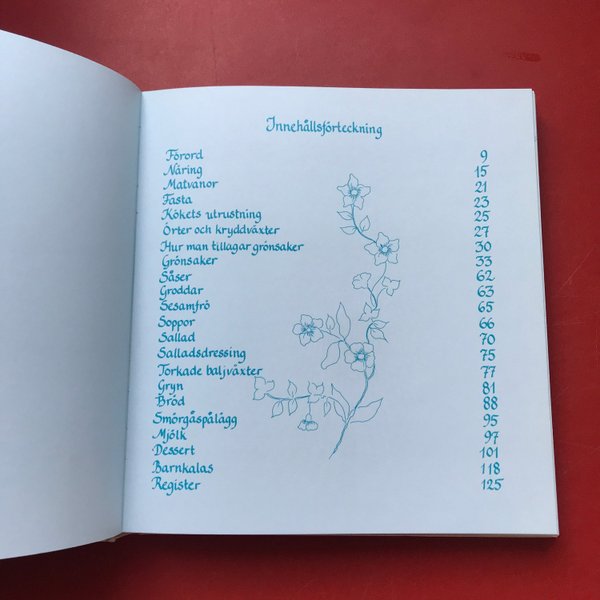 Innehållsförteckning
Förord 9
Näring 15
Matvanor 21
Fasta 23
Kökets utrustning 25
Örter och kryddväxter 27
Hur man tillagar grönsaker 30
Grönsaker 33
Såser 62
Groddar 63
Sesamfrö 65
Soppor 66
Sallad 70
Salladsdressing 75
Torkade baljväxter 77
Gryn 81
Bröd 88
Smörgåspålägg 95
Mjölk 97
Dessert 101
Barnkalas 118
Register 125